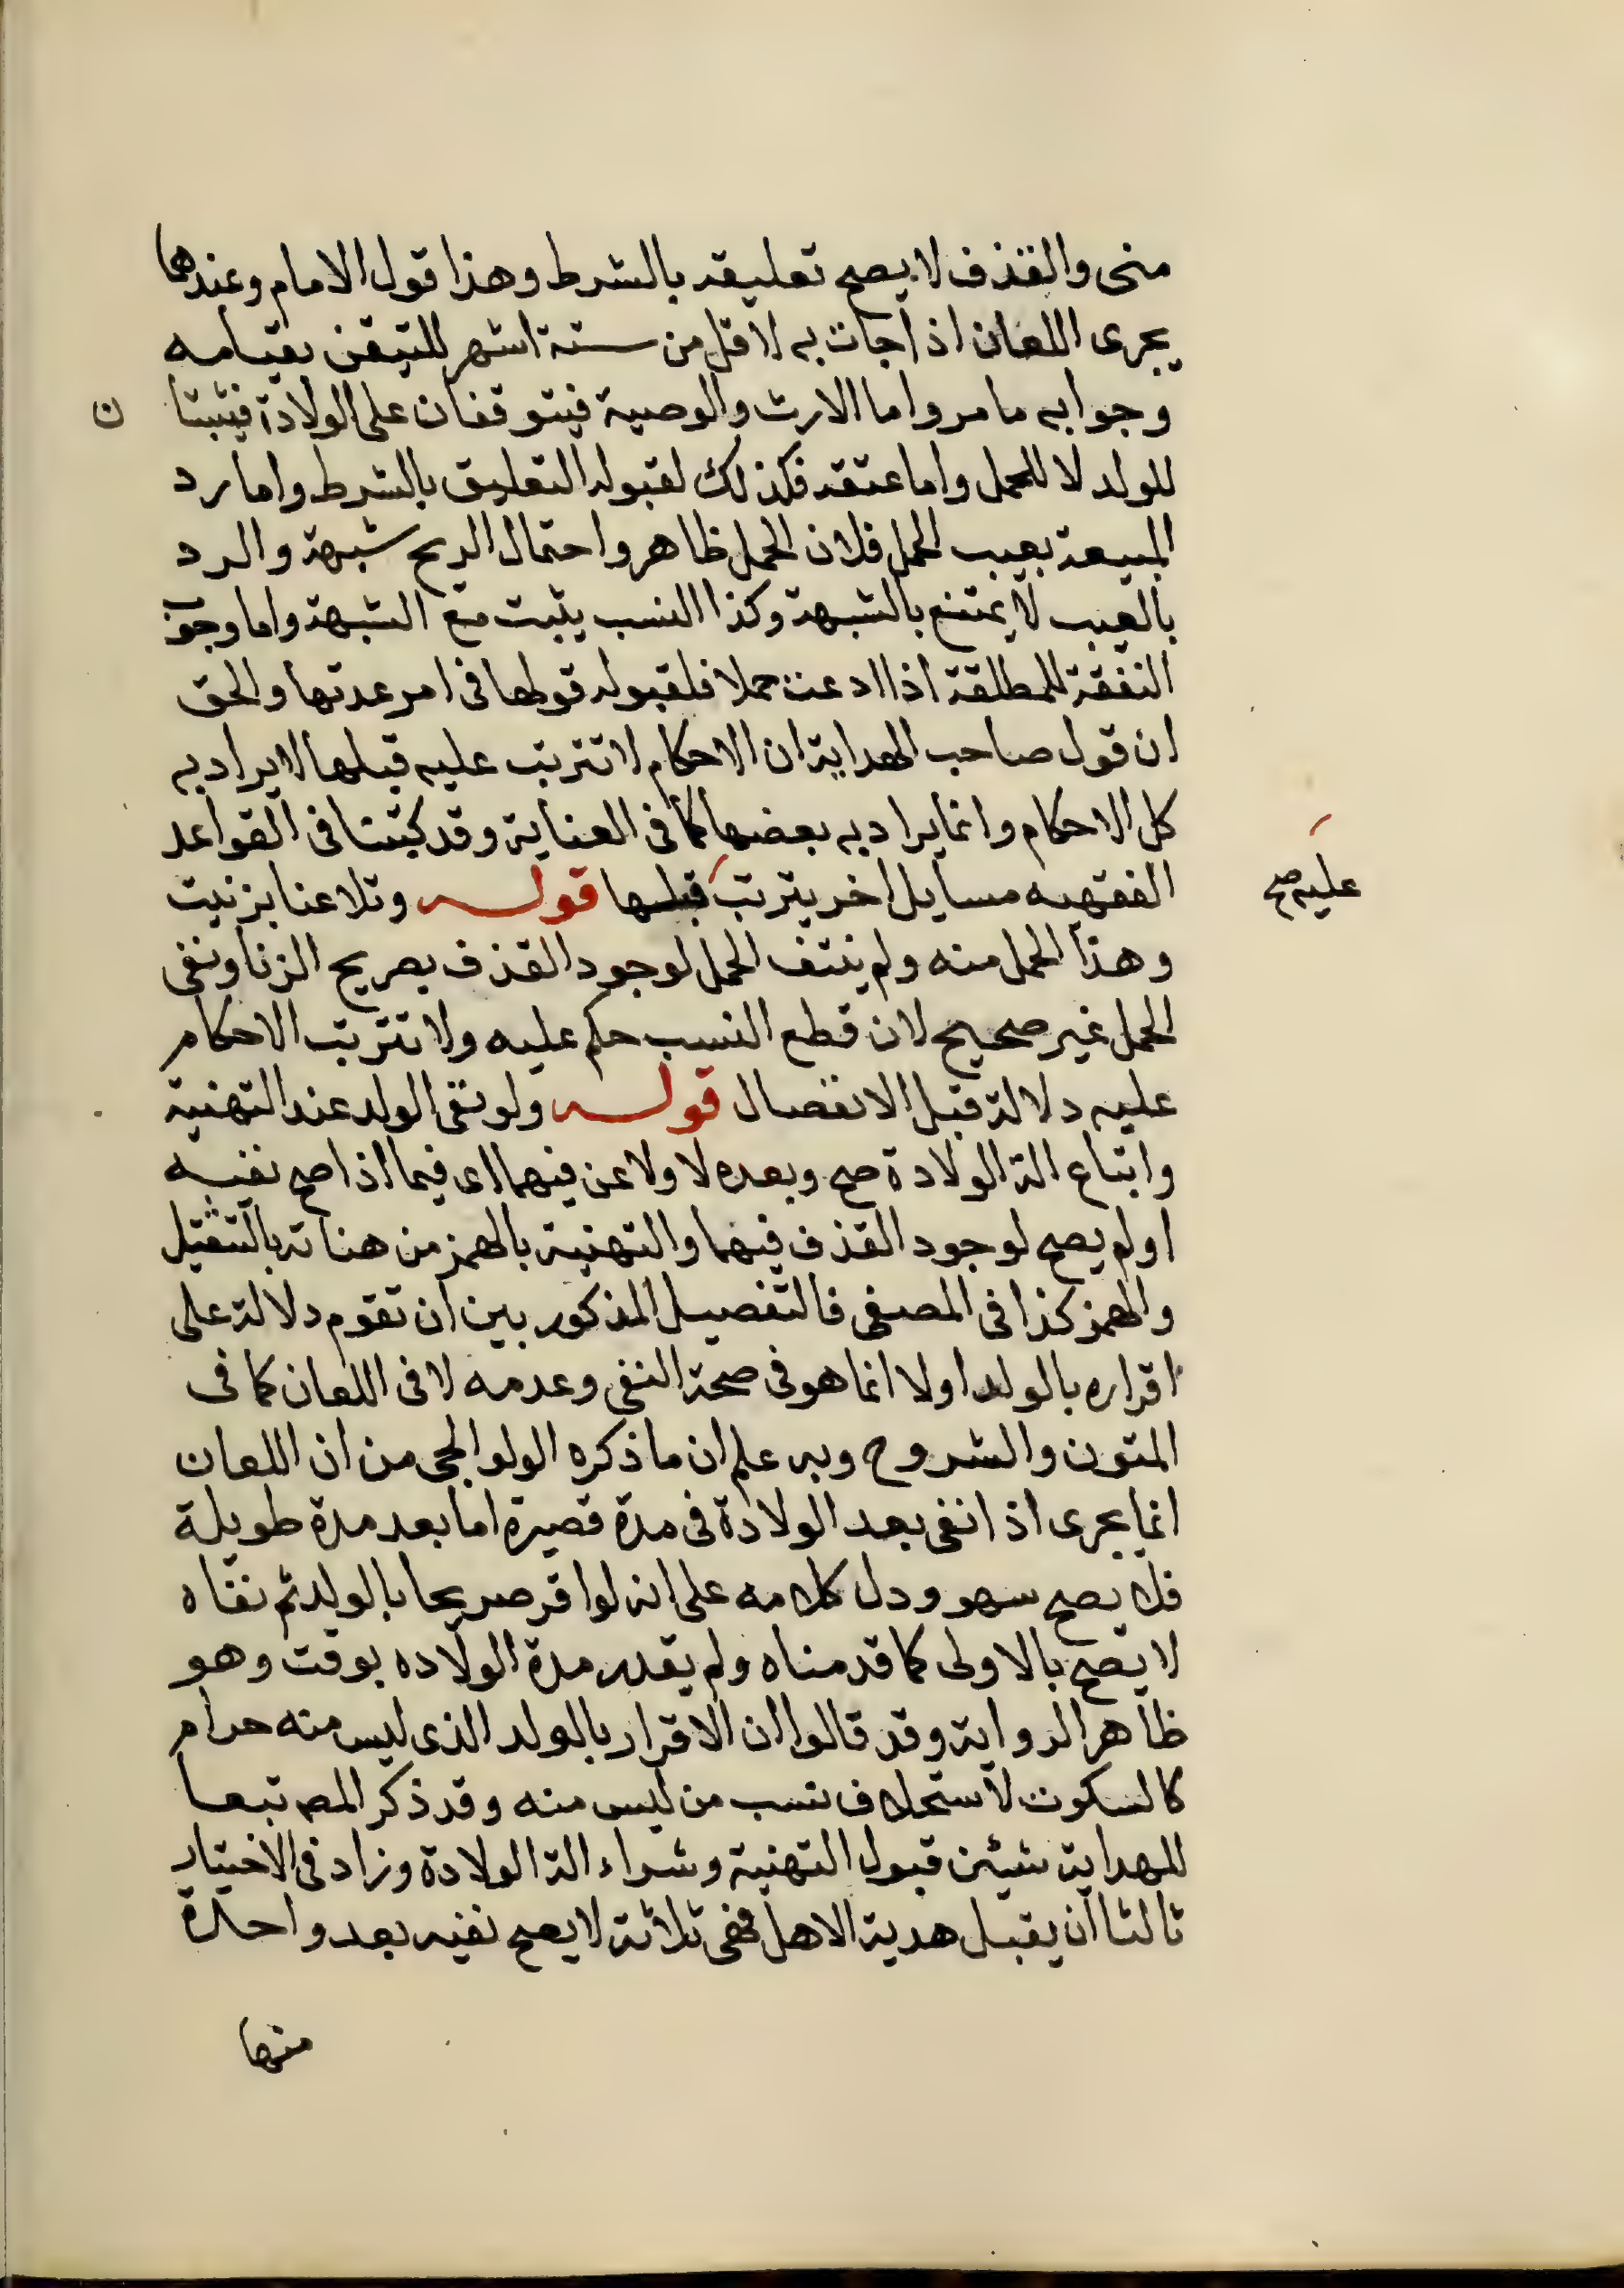 منى والقذف لا يصح تعليقه بالشرط وهذا قول الامام وعندهما
يجرى اللعان اذا جات به لاقل من ستة اشهر للتيقن بقيامه
وجوابه ما مر واما الارث والوصية فيتوقفان على الولادة فيثبتا ن
للولد لا للحمل واما عتقه فكذلك لقبوله التعليق بالشرط واما رد
المبيعة بعيب الحمل فلان الحمل ظاهر واحتمال الريح شبهة والرد
بالعيب لا يمتنع بالشبهة وكذا النسب يثبت مع الشبهة واما وجوب
النفقة للمطلقة اذا ادعت حملا فلقبوله قولها فى امر عدتها والحق
ان قول صاحب الهداية ان الاحكام لا تترتب عليه قبلها لا يراد به
كل الاحكام وانما يراد به بعضها كما فى العناية وقد كتبنا فى القواعد
الفقهيه مسايل اخر يترتب قبلها قوله وتلاعنا بزنيت
عليه صح
وهذا الحمل منه ولم ينتف الحمل لوجود القذف بصريح الزنا ونفى
الحمل غير صحيح لان قطع النسب حكم عليه ولا تترتب الاحكام
عليه دلالة قبل الانفصال قوله ولو نفى الولد عند التهنية
وابتاع الة الولادة صح وبعده لا ولاعن فيهما اى فيما اذا صح نفيه
او لم يصح لوجود القذف فيهما والتهنية بالهمز من هناته بالتثقيل
والهمز كذا فى المصفى فالتفصيل المذكور بين ان تقوم دلالة على
اقراره بالولد اولا انما هو فى صحة النفى وعدمه لا فى اللعان كما فى
المتون والشروح وبه علم ان ما ذكره الولوالجى من ان اللعان
انما يجرى اذا نفى بعد الولادة فى مدة قصيرة اما بعد مدة طويلة
فلا يصح سهو ودل كلامه على انه لو اقر صريحا بالولد ثم نفاه
لا يصح بالاولى كما قدمناه ولم يقدر مدة الولاده بوقت وهو
ظاهر الرواية وقد قالوا ان الاقرار بالولد الذى ليس منه حرام
كالسكوت لاستحلاف نسب من ليس منه وقد ذكر المص تبعا
للهداية شيئين قبول التهنية وشراء الة الولادة وزاد فى الاختيار
ثالثا ان يقبل هدية الاهل فهى ثلاثة لا يصح نفيه بعد واحدة
منها